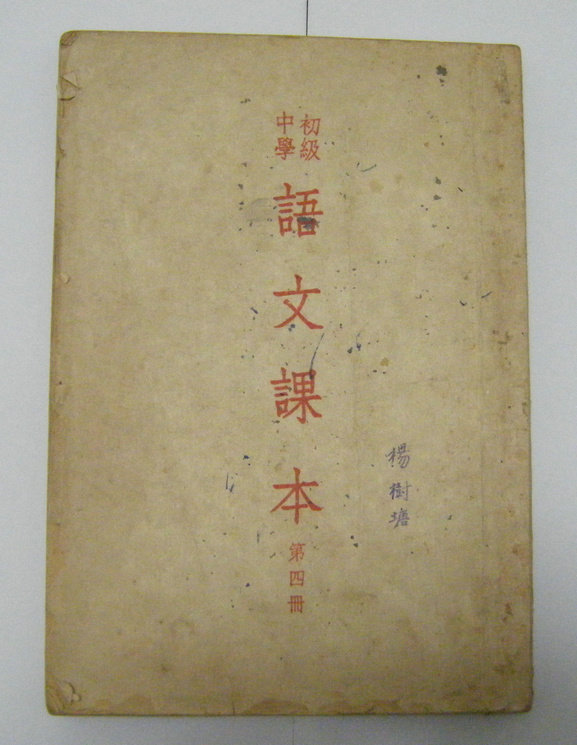 初級
中學
語文課本
第四冊
楊樹塘